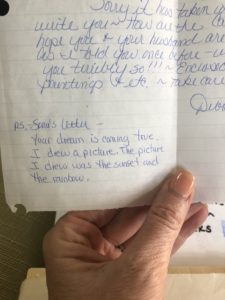 Sorry it has taken
write you - How are the
hope you & your husband are
As I told you once before -
you terribly so!!!
paintings & etc. - take care
P.S. - Sara's Letter -
Your dream is coming true
I drew a picture. The picture
I drew was the sunset and
the rainbow.